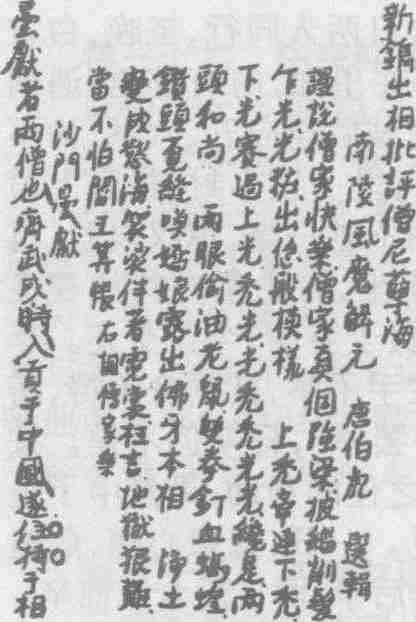 新鐫出相批評僧尼孽海
南陵風魔解元 唐伯虎 選輯
謾說僧家快樂僧家真個強梁披緇削髮
乍光光粧出恁般模樣 上禿牽連下禿
下光賽過上光禿光光禿禿光光纔是兩
頭和尚 兩眼偷油老鼠雙拳釘血螞蝗
鑽頭覓縫喚嬌娘露出佛牙本相 淨土
變成慾海袈裟伴著霓裳枉言地獄狠難
當不怕閻王算帳 右調僧家樂
沙門曇獻
曇獻者西僧也齊武成時入首于中國遂行持于相